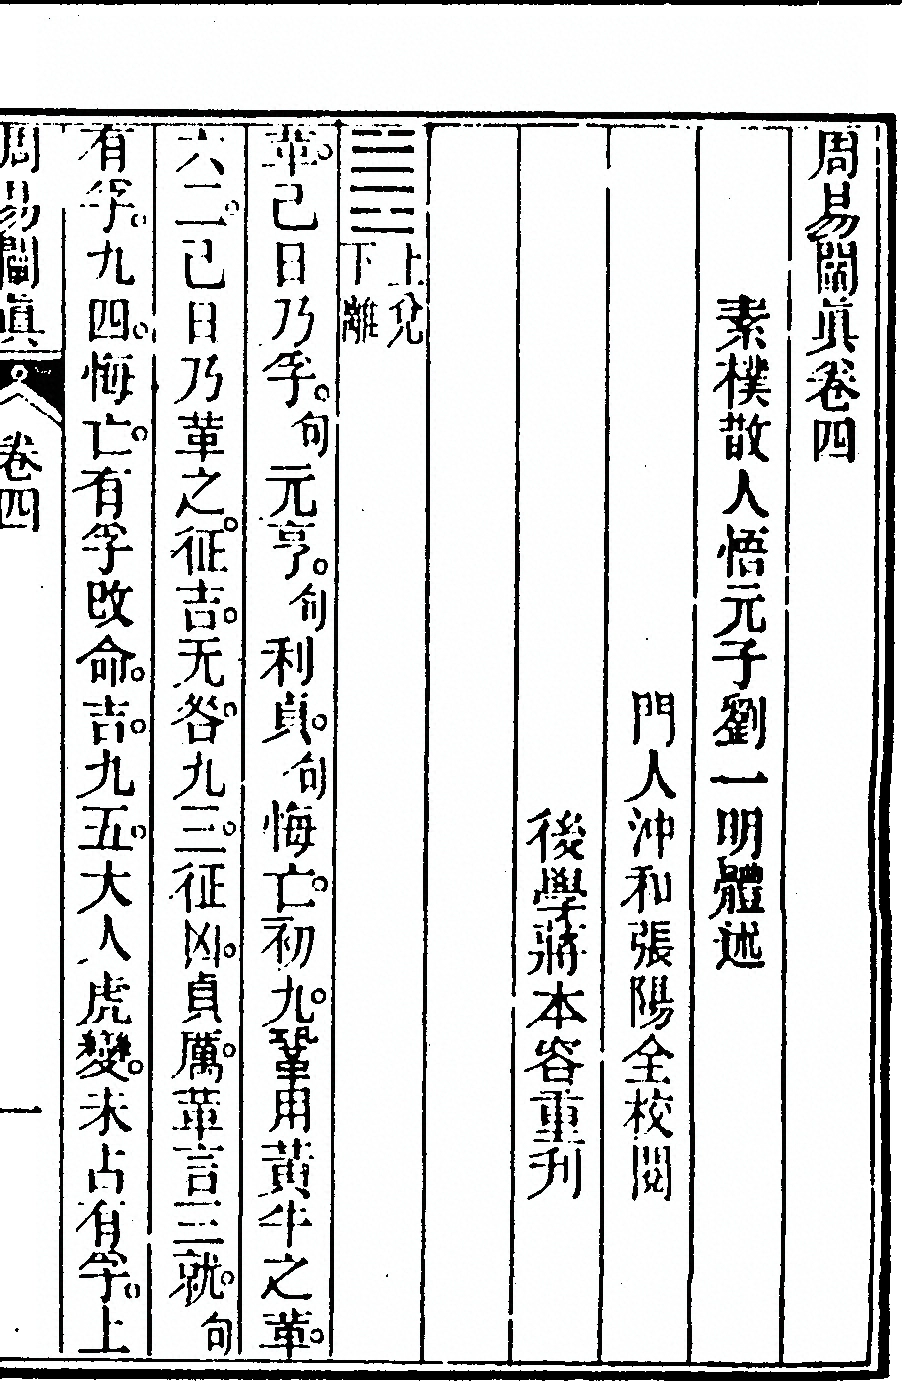 周易闡眞卷四
素樸散人悟元子劉一明體述
門人沖和張陽全校閱
後學蔣本容重刋
上兌
下離
革。己日乃孚。句元亨。句利貞。句悔亡。初九。鞏用黃牛之革。
六二。己日乃革之。征吉。无咎。九三。征凶。貞厲。革言三就。句
有孚。九四。悔亡。有孚改命。吉。九五。大人虎變。未占有孚。上
周易闡眞
卷四
一